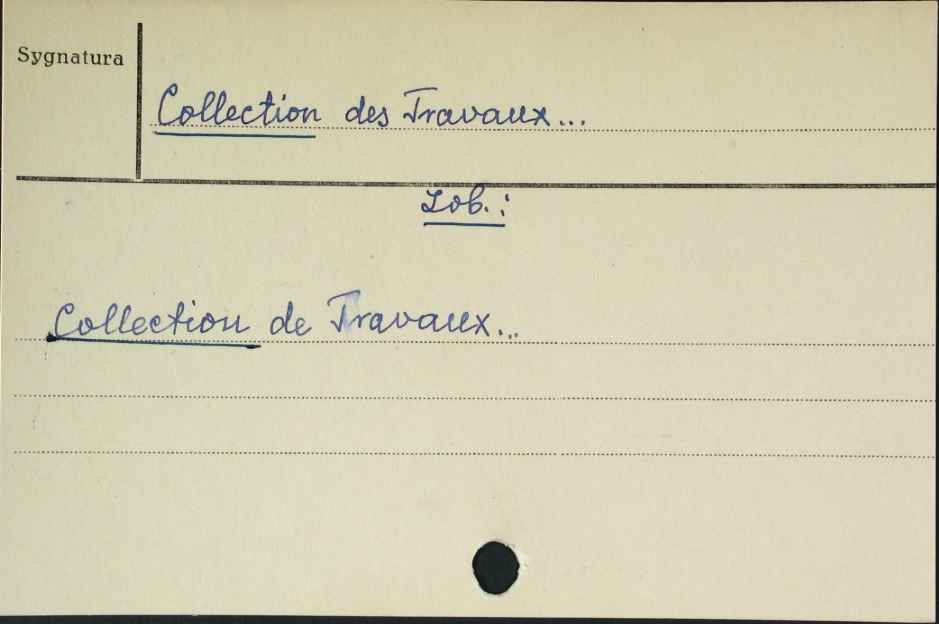 Sygnatura
Collection des Travaux...
Zob.:
Collection de Travaux...